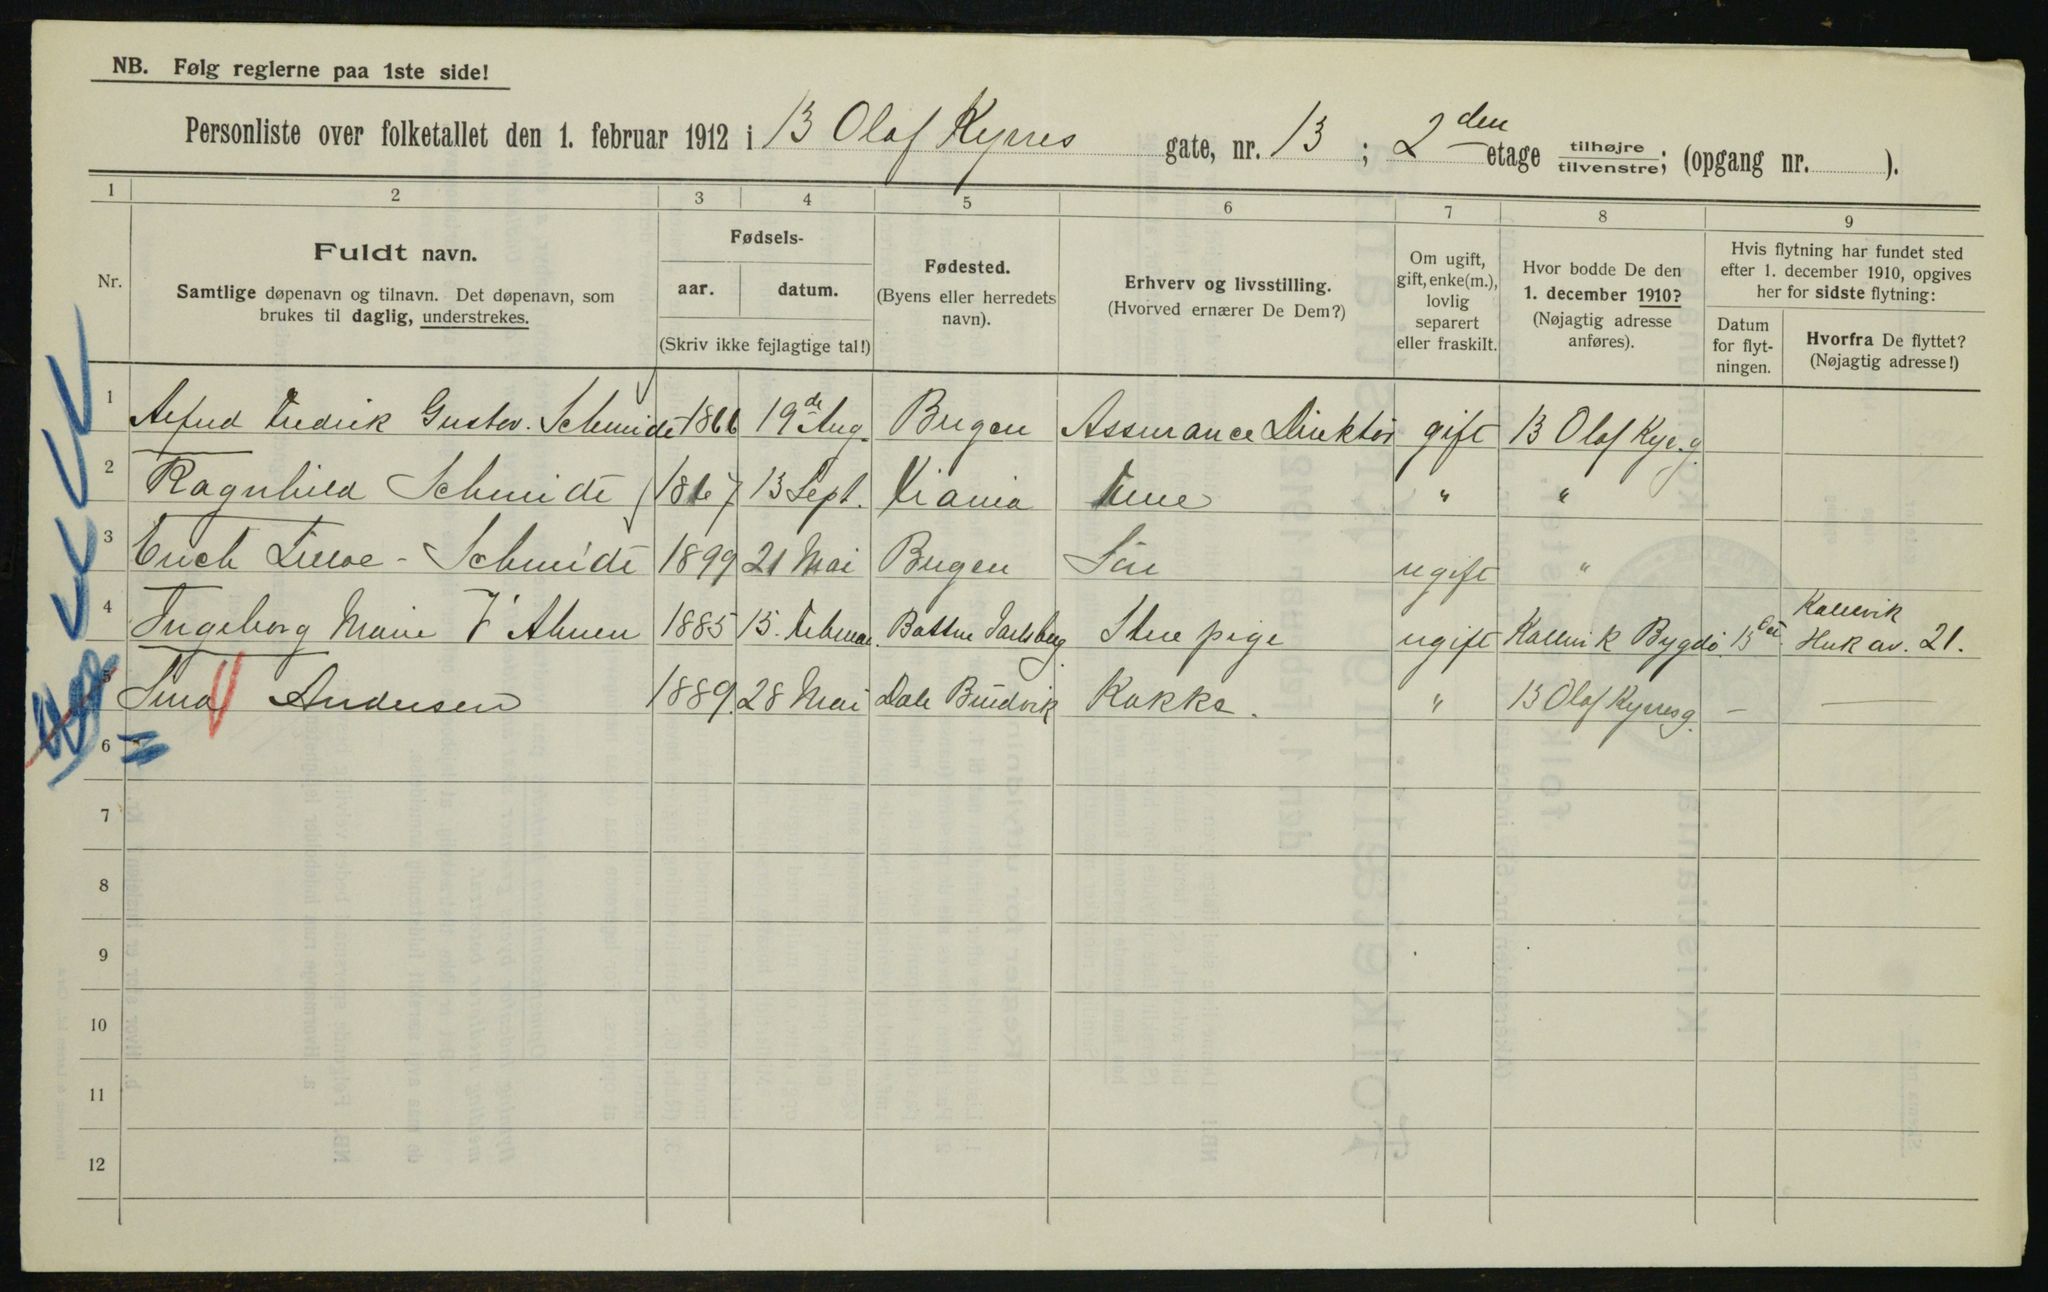 NB. Følg reglerne paa 1ste side!
Personliste over folketallet den 1. februar 1912 i 13 Olaf Kyrres gate, nr. 13 ; 2den etage tilhøjre/tilvenstre; (opgang nr. ).
1 2 3 4 5 6 7 8 9
Nr.
Fuldt navn.
Samtlige døpenavn og tilnavn. Det døpenavn, som
brukes til daglig, understrekes.
Fødsels-
aar. datum.
(Skriv ikke fejlagtige tal!)
Fødested.
(Byens eller herredets
navn).
Erhverv og livsstilling.
(Hvorved ernærer De Dem?)
Om ugift,
gift, enke(m.),
lovlig
separert
eller fraskilt.
Hvor bodde De den
1. december 1910?
(Nøjagtig adresse
anføres).
Hvis flytning har fundet sted
efter 1. december 1910, opgives
her for sidste flytning:
Datum
for flyt-
ningen.
Hvorfra De flyttet?
(Nøjagtig adresse!)
1 Alfred Fredrik Gustav. Schmidt 1866 19de Aug. Bergen Assurance Direktør gift 13 Olaf Kyr. g.
2 Ragnhild Schmidt 1867 13 Sept. Xiania " "
3 Erich Schmidt 1899 21 Mai Bergen Søn ugift "
4 Ingeborg Marie 1885 15. Februar. Jarlsberg Stue pige ugift Kallevik Bygdø 13 Oct. Kallevik
Huk av. 21.
5 Andersen 1889. 28 Mai Dale Kokke. " 13 Olaf Kyrres g. — —
6
7
8
9
10
11
12